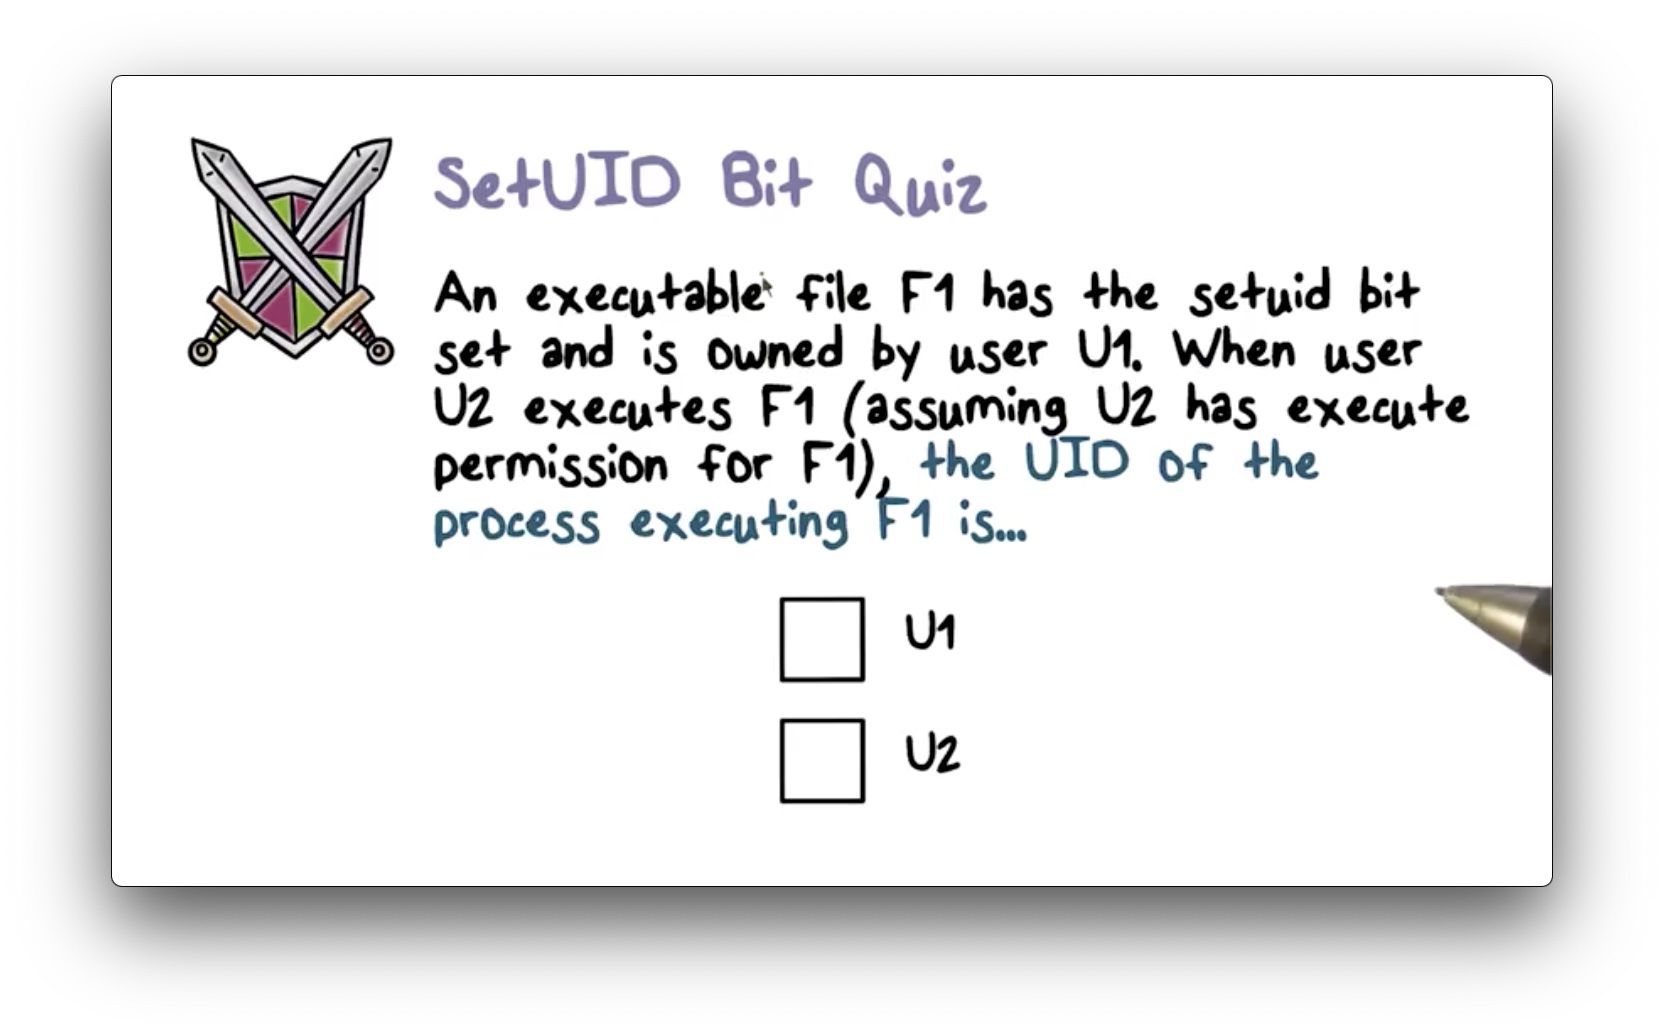 SetUID Bit Quiz
An executable file F1 has the setuid bit
set and is owned by user U1. When user
U2 executes F1 (assuming U2 has execute
permission for F1), the UID of the
process executing F1 is...
U1
U2